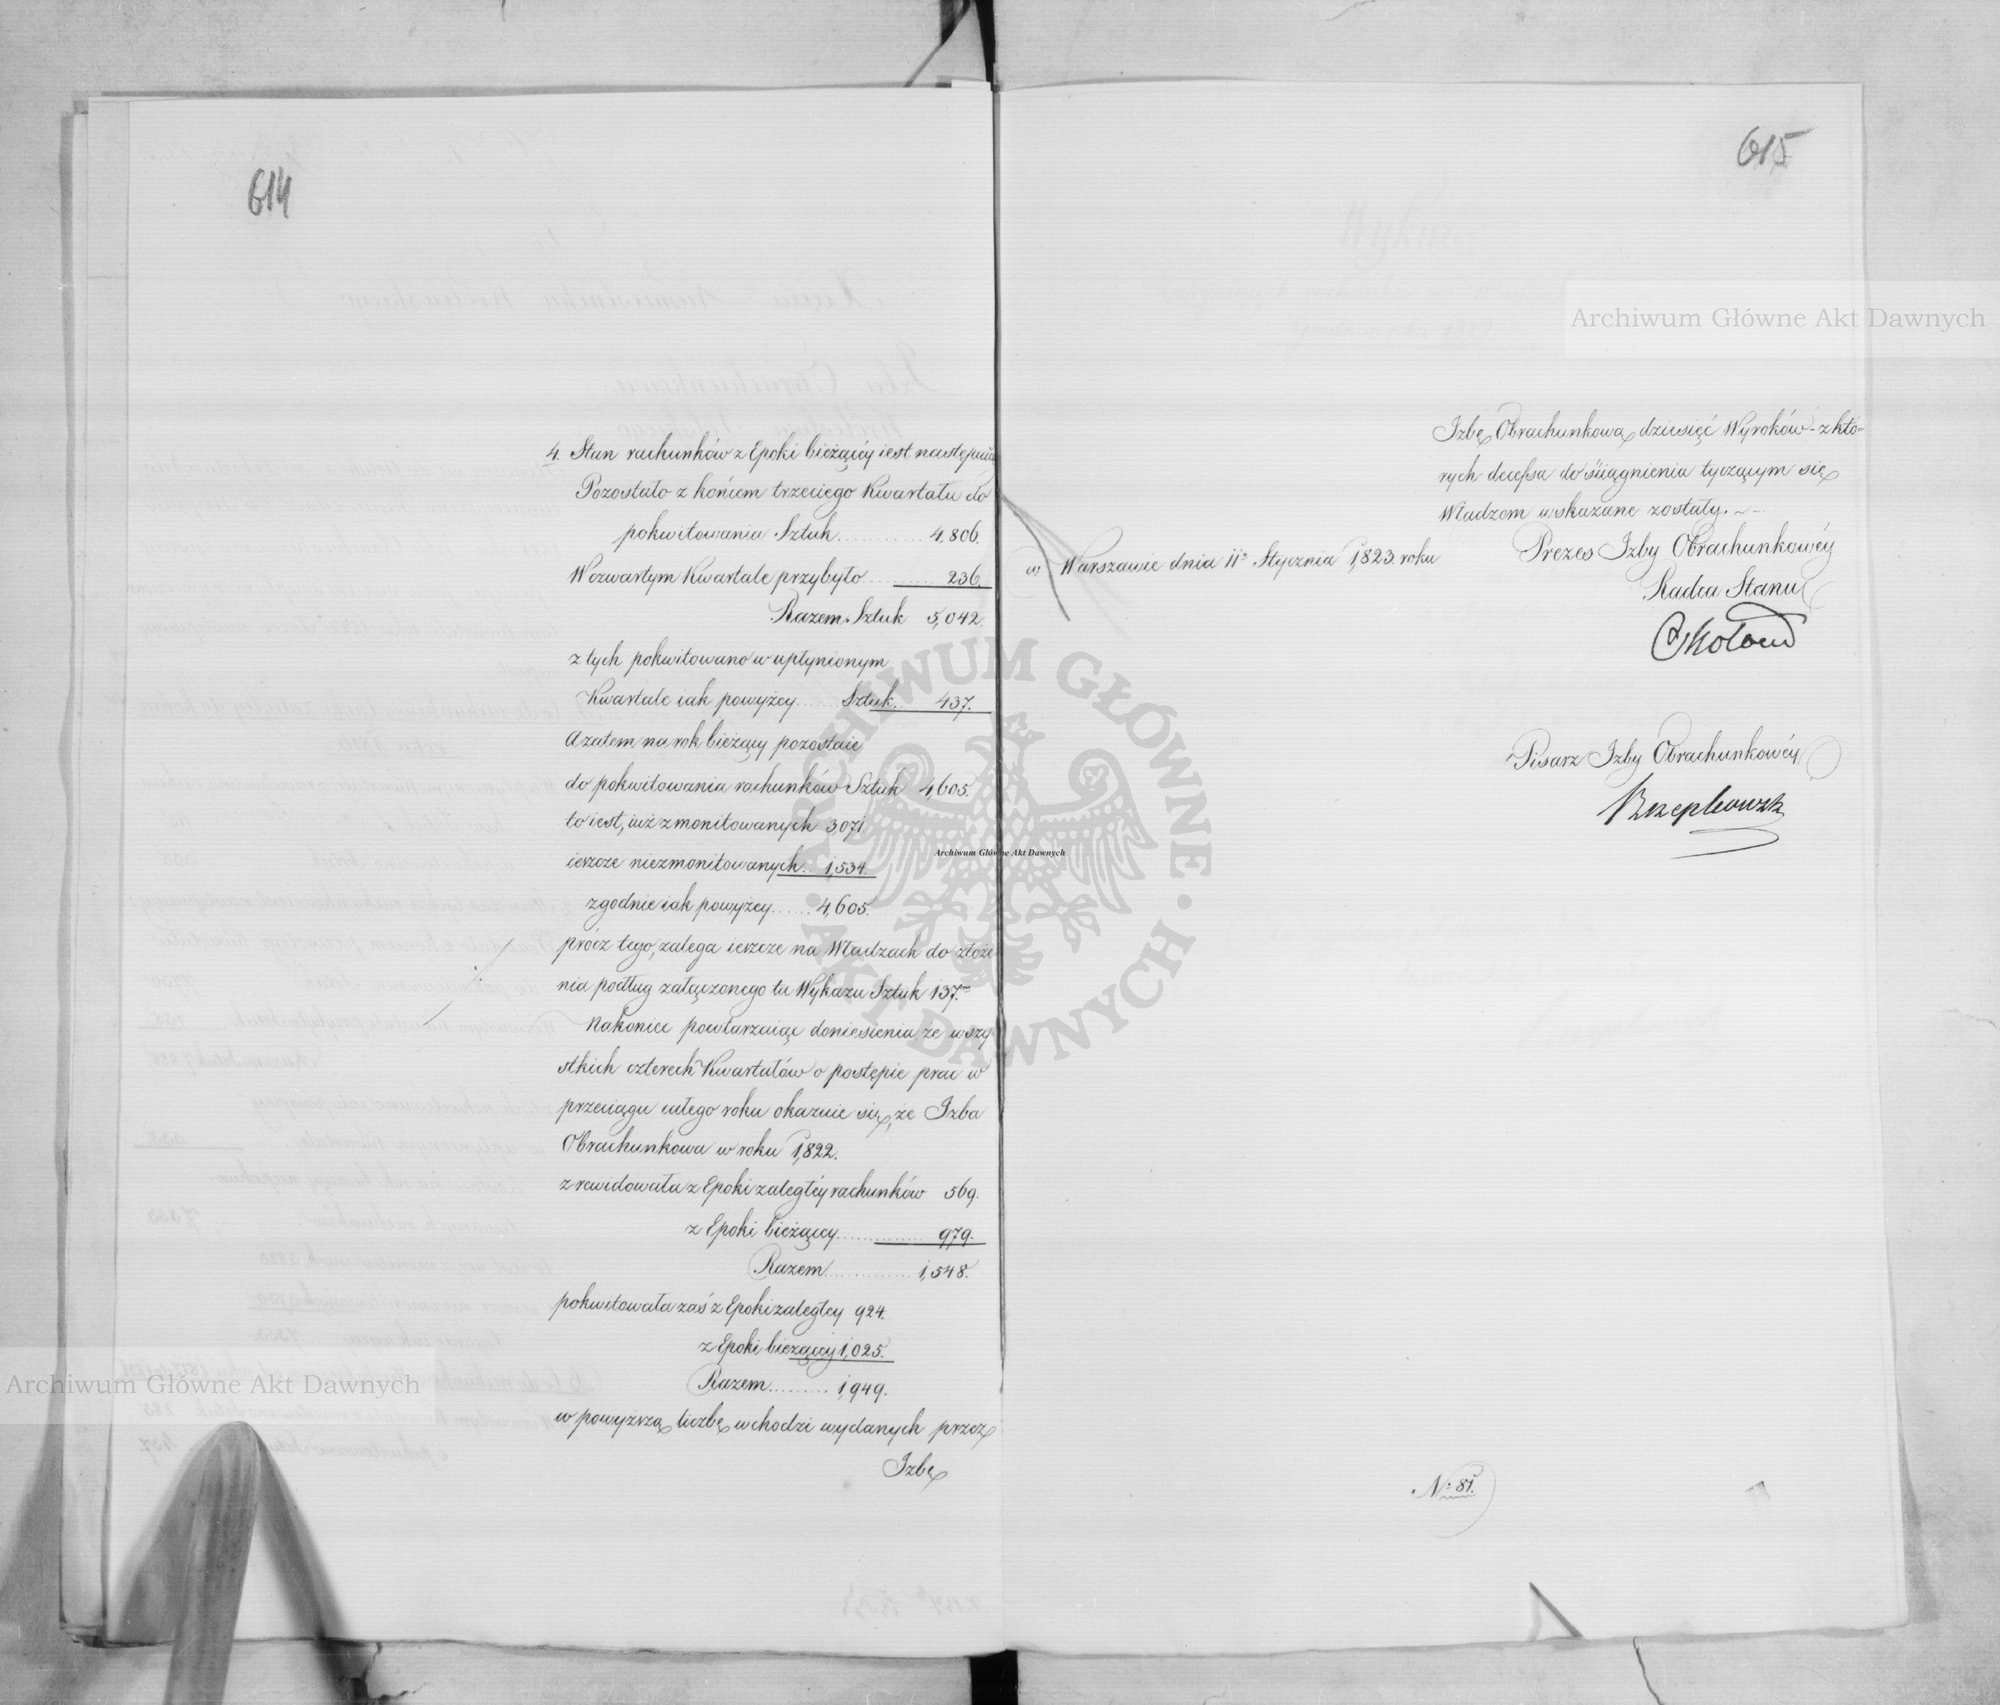 614
4. Stan rachunków z Epoki bieżącéy iest następuią
Pozostało z końcem trzeciego Kwartału do
pokwitowania Sztuk............ 4,806.
W czwartym Kwartale przybyło......... 236.
Razem Sztuk 5,042.
z tych pokwitowano w upłynionym
Kwartale iak powyżey...... Sztuk. 437.
A zatem na rok bieżący pozostaie
do pokwitowania rachunków Sztuk 4,605.
to iest, iuż zmonitowanych 3,071
ieszcze niezmonitowanych. 1,534.
zgodnie iak powyżey...... 4,605.
prócz tego, zalega ieszcze na Władzach do złoże
nia podług załączonego tu Wykazu Sztuk 137.
Nakoniec powtarzaiąc doniesienia ze wszy
stkich czterech Kwartałów o postępie prac w
przeciągu całego roku okazuie się, że Izba
Obrachunkowa w roku 1,822.
zrewidowała z Epoki zaległéy rachunków 569.
z Epoki bieżącey.............. 979.
Razem............. 1,548.
pokwitowała zaś z Epoki zaległey 924.
z Epoki bieżącéy 1,025.
Razem......... 1,949.
w powyższą liczbę wchodzi wydanych przez
Izbę
615
Izbę Obrachunkową dziesięć Wyroków - z któ-
rych decessa do ściągnienia tyczącym się
Władzom wskazane zostały.
w Warszawie dnia 11º Stycznia 1,823. roku
Prezes Izby Obrachunkowéy
Radca Stanu
Pisarz Izby Obrachunkowéy
N: 81.
Archiwum Główne Akt Dawnych
Archiwum Główne Akt Dawnych
Archiwum Główne Akt Dawnych
ARCHIWUM GŁÓWNE · AKT DAWNYCH ·